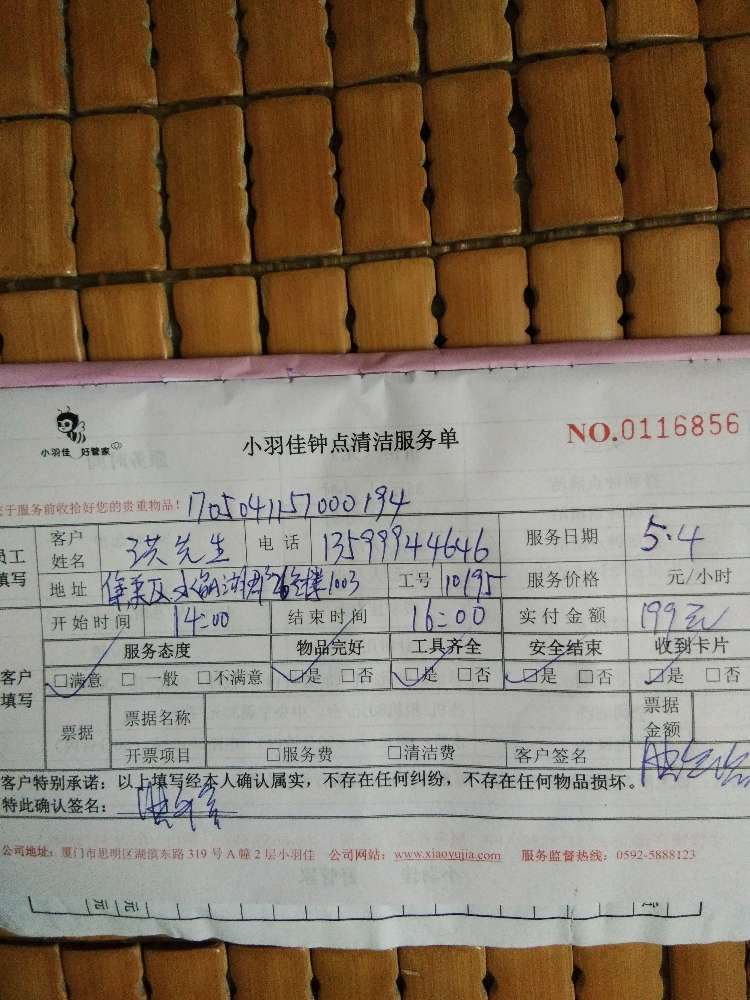 小羽佳 好管家
小羽佳钟点清洁服务单
NO.0116856
于服务前收拾好您的贵重物品！ 1705041157000194
员工填写 客户姓名 洪先生 电话 13599944646 服务日期 5.4
地址 1003 工号 10195 服务价格 元/小时
开始时间 14:00 结束时间 16:00 实付金额 199元
客户填写 服务态度 物品完好 工具齐全 安全结束 收到卡片
☑满意 □一般 □不满意 ☑是 □否 ☑是 □否 ☑是 □否 ☑是 □否
票据 票据名称 票据金额
开票项目 □服务费 □清洁费 客户签名
客户特别承诺：以上填写经本人确认属实，不存在任何纠纷，不存在任何物品损坏。
特此确认签名：
公司地址：厦门市思明区湖滨东路 319 号 A 幢 2 层小羽佳 公司网站：www.xiaoyujia.com 服务监督热线：0592-5888123